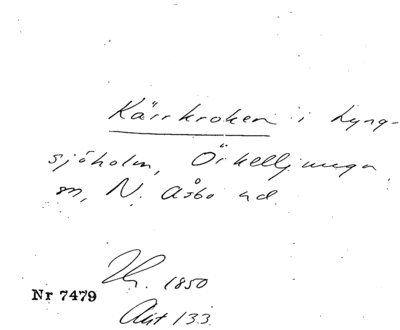 Kärrkroken i Lyng-
sjöholm, Örkelljunga
sn, N. Åsbo hd
Nr 7479
1850
Akt 133